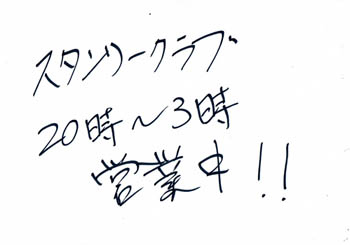 スタンリークラブ
20時～3時
営業中!!